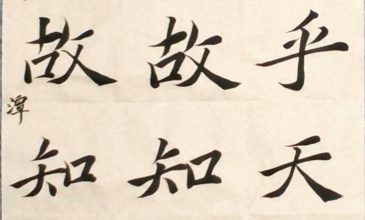 乎天
故知
故知
潭